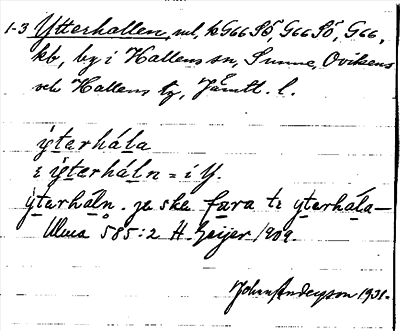 1-3 Ytterhallen, ml, k G66 SÖ, G66 SÖ, G66,
kb, by i Hallens sn, Sunne, Ovikens
och Hallens tg, Jämtl. l.
ýterhála
i ýterháln = i Y.
ýterháln. ja ska fara te yterhála —
Ulma 585:2 H. Geijer 1909.
Johan Anderson 1931.